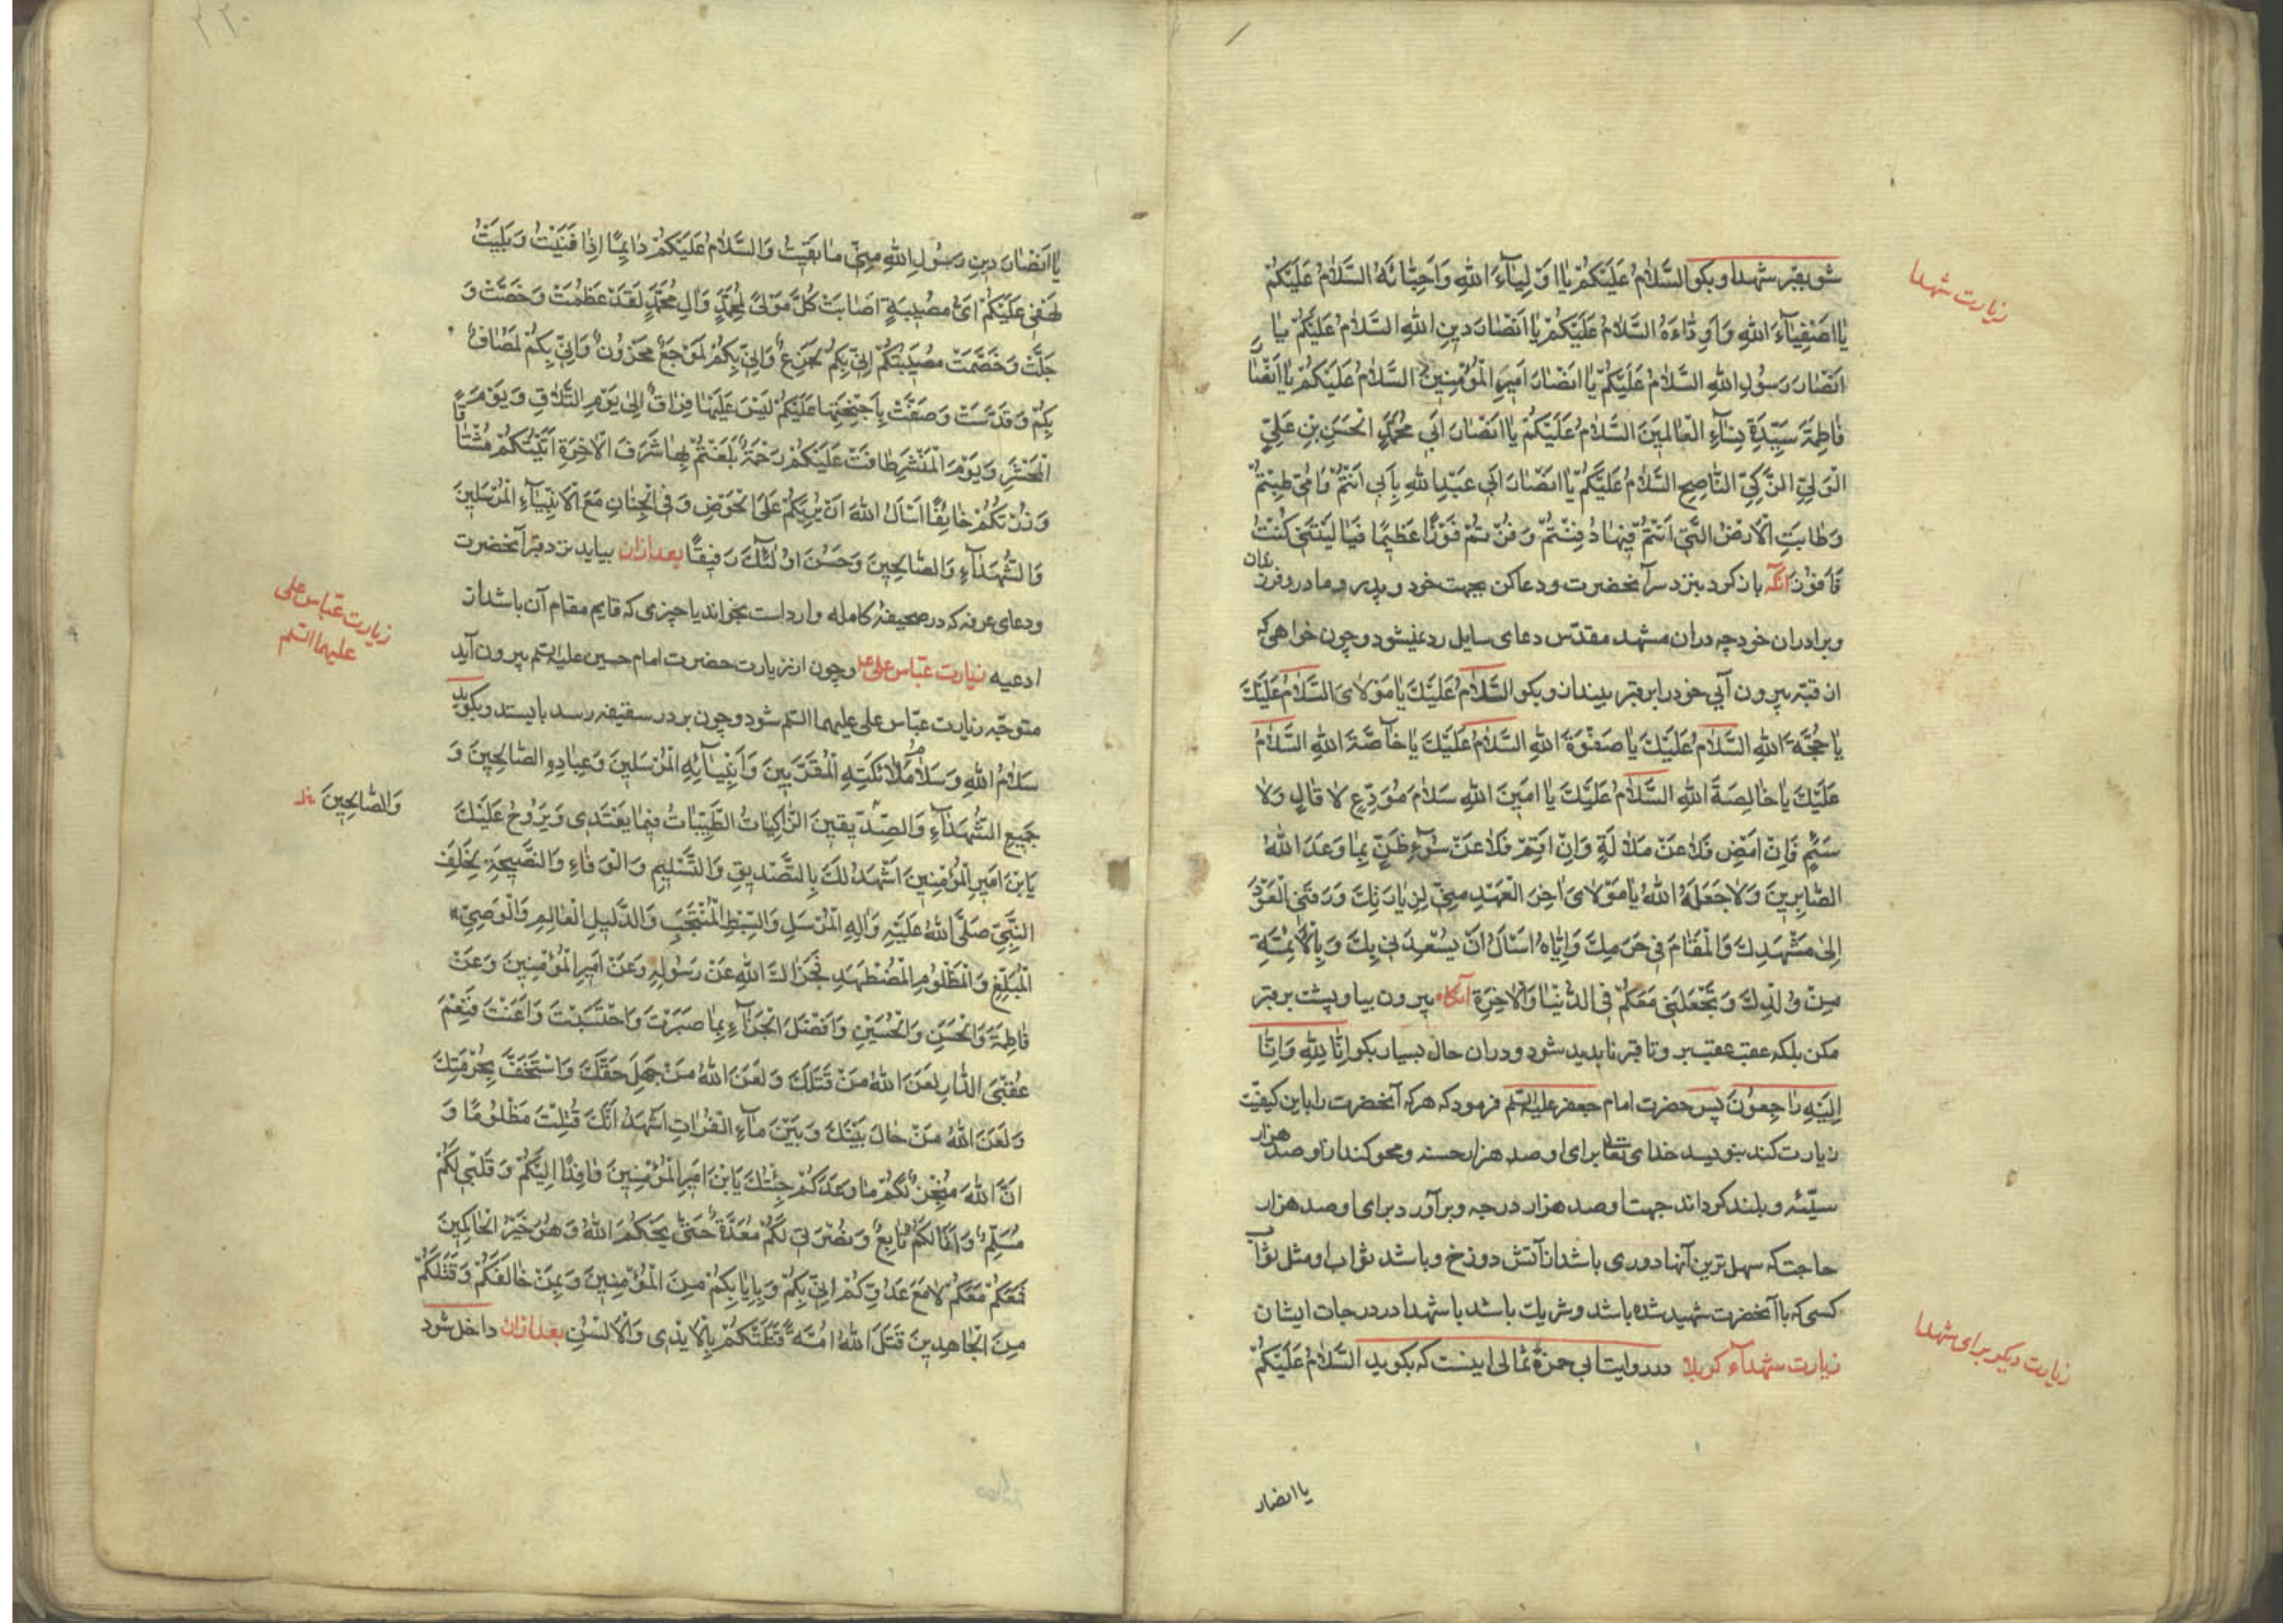 زیارت شهدا
شو بقبر شهدا و بکو السَّلامُ عَلَیْکُمْ یٰا اَوْلِیٰآءَ اللهِ وَاَحِبّٰائَهُ السَّلامُ عَلَیْکُمْ
یٰا اَصْفِیٰآءَ اللهِ وَاَوِدّٰاءَهُ السَّلامُ عَلَیْکُمْ یٰا اَنْصٰارَ دینِ اللهِ السَّلامُ عَلَیْکُمْ یٰا
اَنْصٰارَ رَسُولِ اللهِ السَّلامُ عَلَیْکُمْ یٰا اَنْصٰارَ اَمیرِ الْمُؤْمِنینَ السَّلامُ عَلَیْکُمْ یٰا اَنْصٰارَ
فٰاطِمَةَ سَیِّدَةِ نِسٰآءِ الْعٰالَمینَ السَّلامُ عَلَیْکُمْ یٰا اَنْصٰارَ اَبی مُحَمَّدٍ الْحَسَنِ بْنِ عَلِیٍّ
الْوَلِیِّ الزَّکِیِّ النّٰاصِحِ السَّلامُ عَلَیْکُمْ یٰا اَنْصٰارَ اَبی عَبْدِ اللهِ بِاَبی اَنْتُمْ وَاُمّی طِبْتُمْ
وَطٰابَتِ الْاَرْضُ الَّتی اَنْتُمْ فیهٰا دُفِنْتُمْ وَفُزْتُمْ فَوْزًا عَظیمًا فَیٰا لَیْتَنی کُنْتُ
فَاَفُوزَ آنگه باز کرد بنزد سر آنحضرت و دعا کن بجهت خود و پدر و مادر و فرزندان
و برادران خود چه دران مشهد مقدّس دعای سایل رد نمیشود و چون خواهی که
از قبّه بیرون آیی خود را بر قبر بینداز و بکو السَّلامُ عَلَیْکَ یٰا مَوْلٰایَ السَّلامُ عَلَیْکَ
یٰا حُجَّةَ اللهِ السَّلامُ عَلَیْکَ یٰا صَفْوَةَ اللهِ السَّلامُ عَلَیْکَ یٰا خٰآصَّةَ اللهِ السَّلامُ
عَلَیْکَ یٰا خٰالِصَةَ اللهِ السَّلامُ عَلَیْکَ یٰا اَمینَ اللهِ سَلامَ مُوَدِّعٍ لا قٰالٍ وَلا
سَئِمٍ فَاِنْ اَمْضِ فَلا عَنْ مَلالَةٍ وَاِنْ اُقِمْ فَلا عَنْ سُوءِ ظَنٍّ بِمٰا وَعَدَ اللهُ
الصّٰابِرینَ وَلا جَعَلَهُ اللهُ یٰا مَوْلٰایَ اٰخِرَ الْعَهْدِ مِنّی لِزِیٰارَتِکَ وَرَزَقَنِی الْعَوْدَ
اِلٰی مَشْهَدِکَ وَالْمَقٰامَ فی حَرَمِکَ وَاِیّٰاهُ اَسْاَلُ اَنْ یُسْعِدَنی بِکَ وَبِالْاَئِمَّةِ
مِنْ وُلْدِکَ وَیَجْعَلَنی مَعَکُمْ فِی الدُّنْیٰا وَالْاٰخِرَةِ آنکاه بیرون بیا و پشت بر قبر
مکن بلکه عقب عقب برو تا قبر ناپدید شود و دران حال بسیار بکو اِنّٰا لِلّٰهِ وَاِنّٰا
اِلَیْهِ رٰاجِعُونَ پس حضرت امام جعفر علیه السلم فرمود که هر که آنحضرت را باین کیفیّت
زیارت کند بنویسد خدای تعالی برای او صد هزار حسنه و محو کند از او صد هزار
سیّئه و بلند کرداند جهت او صد هزار درجه و برآورد برای او صد هزار
حاجت که سهل ترین آنها دوری باشد از آتش دوزخ و باشد ثواب او مثل ثواب
کسی که با آنحضرت شهید شده باشد و شریک باشد با شهدا در درجات ایشان
زیارت دیگر برای شهدا
زیارت شهدآء کربلا در روایت ابی حمزهٔ ثمالی اینست که بکوید السَّلامُ عَلَیْکُمْ
یا انصار
یٰا اَنْصٰارَ دینِ رَسُولِ اللهِ مِنّی مٰا بَقیتُ وَالسَّلامُ عَلَیْکُمْ دٰایِمًا اِذٰا فَنَیْتُ وَبَلِیَتْ
لَهْفی عَلَیْکُمْ اَیُّ مُصیبَةٍ اَصٰابَتْ کُلَّ مَوْلًی لِمُحَمَّدٍ وَاٰلِ مُحَمَّدٍ لَقَدْ عَظُمَتْ وَخَصَّتْ وَ
جَلَّتْ وَخَصَّمَتْ مُصیبَتُکُمْ اِنّی بِکُمْ لَجَزِعٌ وَاِنّی بِکُمْ لَمُوجَعٌ مَحْزُونٌ وَاِنّی بِکُمْ لَمُصٰابٌ
بِکُمْ وَقَدَّسَتْ وَصَفَّتْ بِاَجْنِحَتِهٰا عَلَیْکُمْ لَیْسَ عَلَیْهٰا فِرٰاقٌ اِلٰی یَوْمِ التَّلٰاقِ وَیَوْمَ
الْمَحْشَرِ وَیَوْمَ الْمَنْشَرِ طٰافَتْ عَلَیْکُمْ رَحْمَةٌ بَلَغْتُمْ بِهٰا شَرَفَ الْاٰخِرَةِ اَتَیْتُکُمْ مُشْتٰاقًا
وَزُرْتُکُمْ خٰایِفًا اَسْاَلُ اللهَ اَنْ یُرِیَکُمْ عَلَی الْحَوْضِ وَفِی الْجِنٰانِ مَعَ الْاَنْبِیٰآءِ الْمُرْسَلینَ
وَالشُّهَدٰآءِ وَالصّٰالِحینَ وَحَسُنَ اُولٰئِکَ رَفیقًا بعد ازان بیاید نزد قبر آنحضرت
و دعای عرفه که در صحیفهٔ کامله وارد است بخواند یا چیزی که قایم مقام آن باشد از
زیارت عبّاس علی علیهما السلم
ادعیه زیارت عبّاس علی ع و چون از زیارت حضرت امام حسین علیه السلم بیرون آید
متوجّه زیارت عبّاس علی علیهما السلم شود و چون بر در سقیفه رسد بایستد و بکوید
سَلامُ اللهِ وَسَلامُ مَلٰائِکَتِهِ الْمُقَرَّبینَ وَاَنْبِیٰآئِهِ الْمُرْسَلینَ وَعِبٰادِهِ الصّٰالِحینَ وَ
وَالصّٰالِحینَ
جَمیعِ الشُّهَدٰآءِ وَالصِّدّیقینَ الزّٰاکِیٰاتُ الطَّیِّبٰاتُ فیمٰا یَغْتَدی وَیَرُوحُ عَلَیْکَ
یَابْنَ اَمیرِ الْمُؤْمِنینَ اَشْهَدُ لَکَ بِالتَّصْدیقِ وَالتَّسْلیمِ وَالْوَفٰاءِ وَالنَّصیحَةِ لِخَلَفِ
النَّبِیِّ صَلَّی اللهُ عَلَیْهِ وَاٰلِهِ الْمُرْسَلِ وَالسِّبْطِ الْمُنْتَجَبِ وَالدَّلیلِ الْعٰالِمِ وَالْوَصِیِّ
الْمُبَلِّغِ وَالْمَظْلُومِ الْمُضْطَهَدِ فَجَزٰاکَ اللهُ عَنْ رَسُولِهِ وَعَنْ اَمیرِ الْمُؤْمِنینَ وَعَنْ
فٰاطِمَةَ وَالْحَسَنِ وَالْحُسَیْنِ وَاَفْضَلَ الْجَزٰآءِ بِمٰا صَبَرْتَ وَاحْتَسَبْتَ وَاَعَنْتَ فَنِعْمَ
عُقْبَی الدّٰارِ لَعَنَ اللهُ مَنْ قَتَلَکَ وَلَعَنَ اللهُ مَنْ جَهِلَ حَقَّکَ وَاسْتَخَفَّ بِحُرْمَتِکَ
وَلَعَنَ اللهُ مَنْ حٰالَ بَیْنَکَ وَبَیْنَ مٰآءِ الْفُرٰاتِ اَشْهَدُ اَنَّکَ قُتِلْتَ مَظْلُومًا وَ
اَنَّ اللهَ مُنْجِزٌ لَکُمْ مٰا وَعَدَکُمْ جِئْتُکَ یَابْنَ اَمیرِ الْمُؤْمِنینَ وٰافِدًا اِلَیْکُمْ وَقَلْبی لَکُمْ
مُسَلِّمٌ وَاَنٰا لَکُمْ تٰابِعٌ وَنُصْرَتی لَکُمْ مُعَدَّةٌ حَتّٰی یَحْکُمَ اللهُ وَهُوَ خَیْرُ الْحٰاکِمینَ
فَمَعَکُمْ مَعَکُمْ لا مَعَ عَدُوِّکُمْ اِنّی بِکُمْ وَبِاِیٰابِکُمْ مِنَ الْمُؤْمِنینَ وَبِمَنْ خٰالَفَکُمْ وَقَتَلَکُمْ
مِنَ الْجٰاهِدینَ قَتَلَ اللهُ اُمَّةً قَتَلَتْکُمْ بِالْاَیْدی وَالْاَلْسُنِ بعد ازان داخل شود